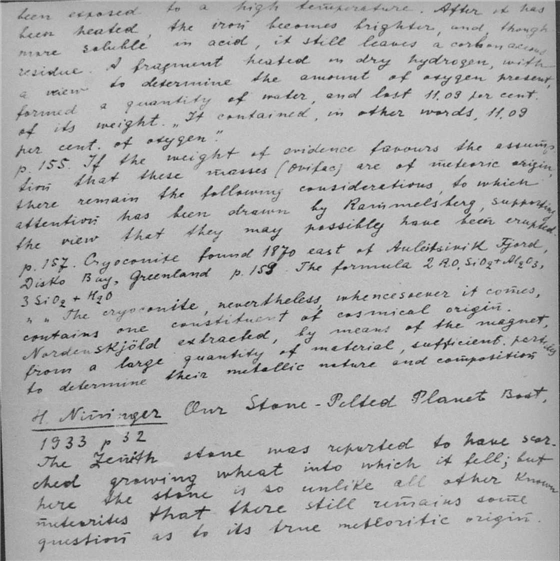 been exposed to a high temperature. After it has
been heated, the iron becomes brighter, and, though
more soluble in acid, it still leaves a carbonaceous
residue. A fragment heated in dry hydrogen, with
a view to determine the amount of oxygen present,
formed a quantity of water, and lost 11,09 per cent.
of its weight. „It contained, in other words, 11,09
per cent. of oxygen."
p. 155. If the weight of evidence favours the assump
tion that these masses (Ovifac) are of meteoric origin,
there remain the following considerations, to which
attention has been drawn by Rammelsberg, supporting
the view that they may possibly have been erupted
p. 157. Cryoconite found 1870 east of Auleitsivik Fjord,
Disko Bay, Greenland p. 159. The formula 2 RO, SiO2 + Al2O3,
3 SiO2 + H2O
„ „ The cryoconite, nevertheless, whencesoever it comes,
contains one constituent of cosmical origin.
Nordenskjöld extracted, by means of the magnet,
from a large quantity of material, sufficient particles
to determine their metallic nature and composition
H. Nininger Our Stone-Pelted Planet Bost,
1933 p 32
The Zenith stone was reported to have scor-
ched growing wheat into which it fell; but
here the stone is so unlike all other known
meteorites that there still remains some
question as to its true meteoritic origin.